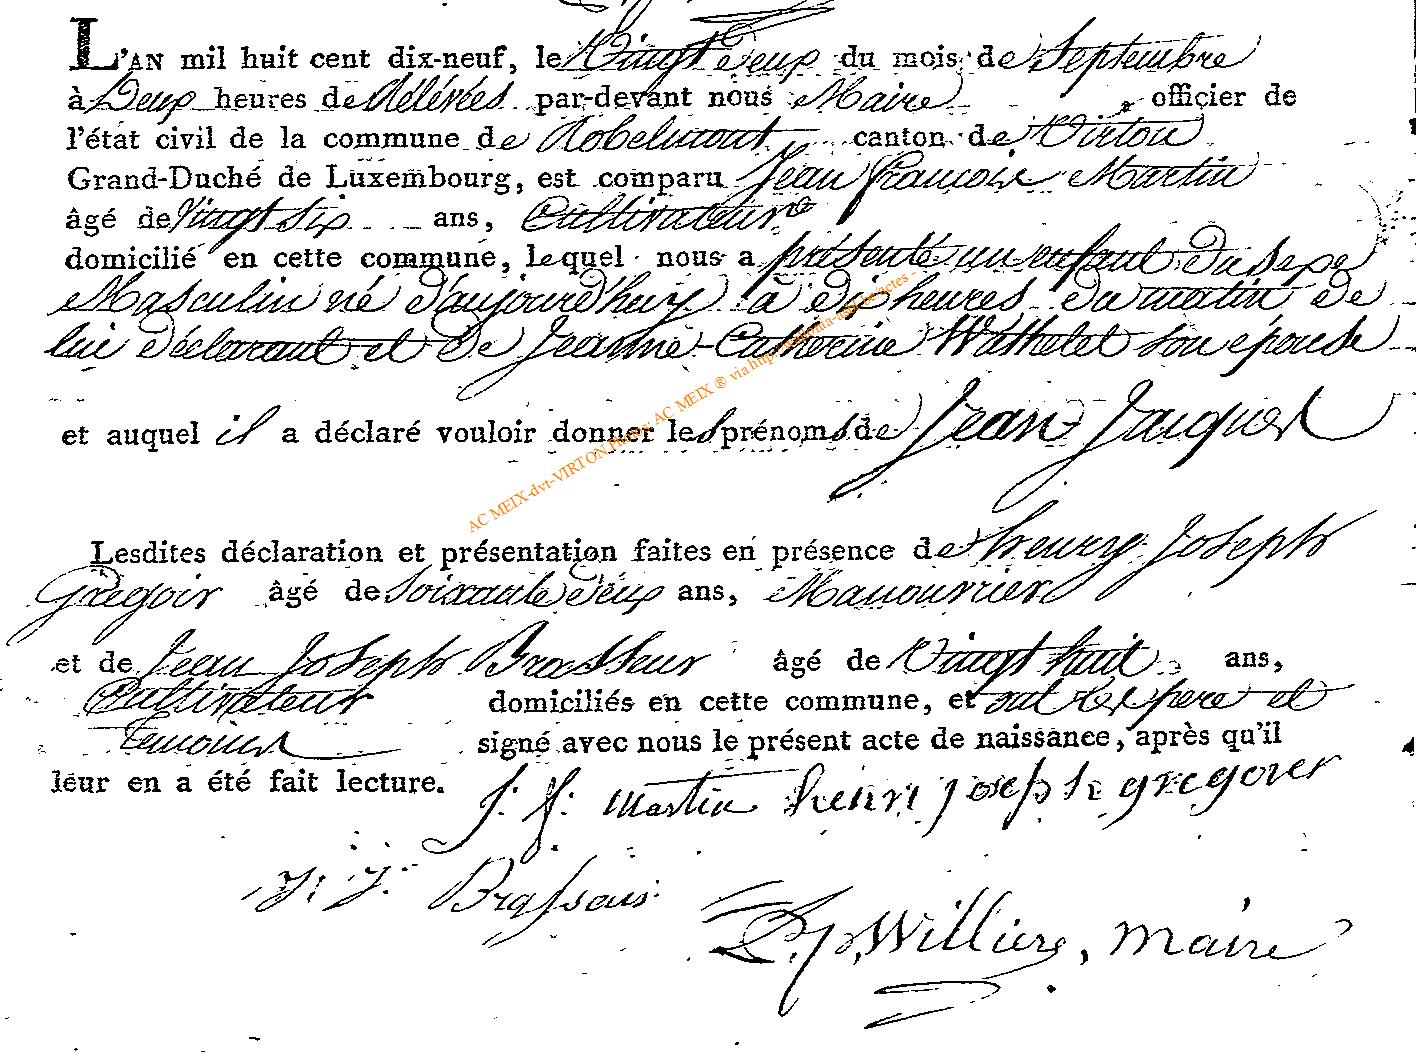 L'AN mil huit cent dix-neuf, le Vingt Deux du mois de Septembre
à Deux heures de Relévées par-devant nous Maire officier de
l'état civil de la commune de Robelmont canton de Virton
Grand-Duché de Luxembourg, est comparu Jean françois Martin
âgé de Vingt Six ans, Cultivateur
domicilié en cette commune, lequel nous a présenté un enfant du Sexe
Masculin né d'aujourd'huy à dix heures du matin de
lui déclarant et de Jeanne-Catherine Wathelet son épouse
et auquel il a déclaré vouloir donner les prénoms de Jean Jacques
AC MEIX-dvt-VIRTON AC MEIX ® via
Lesdites déclaration et présentation faites en présence de henry Joseph
Grégoir âgé de Soixante deux ans, Manouvrier
et de Jean Joseph Brasseur âgé de Vingt huit ans,
Cultivateur domiciliés en cette commune, et ont les pere et
temoins signé avec nous le présent acte de naissance, après qu'il
leur en a été fait lecture.
j. f. martin henri joseph gregoier
J. J. Brasseur
Willière, maire